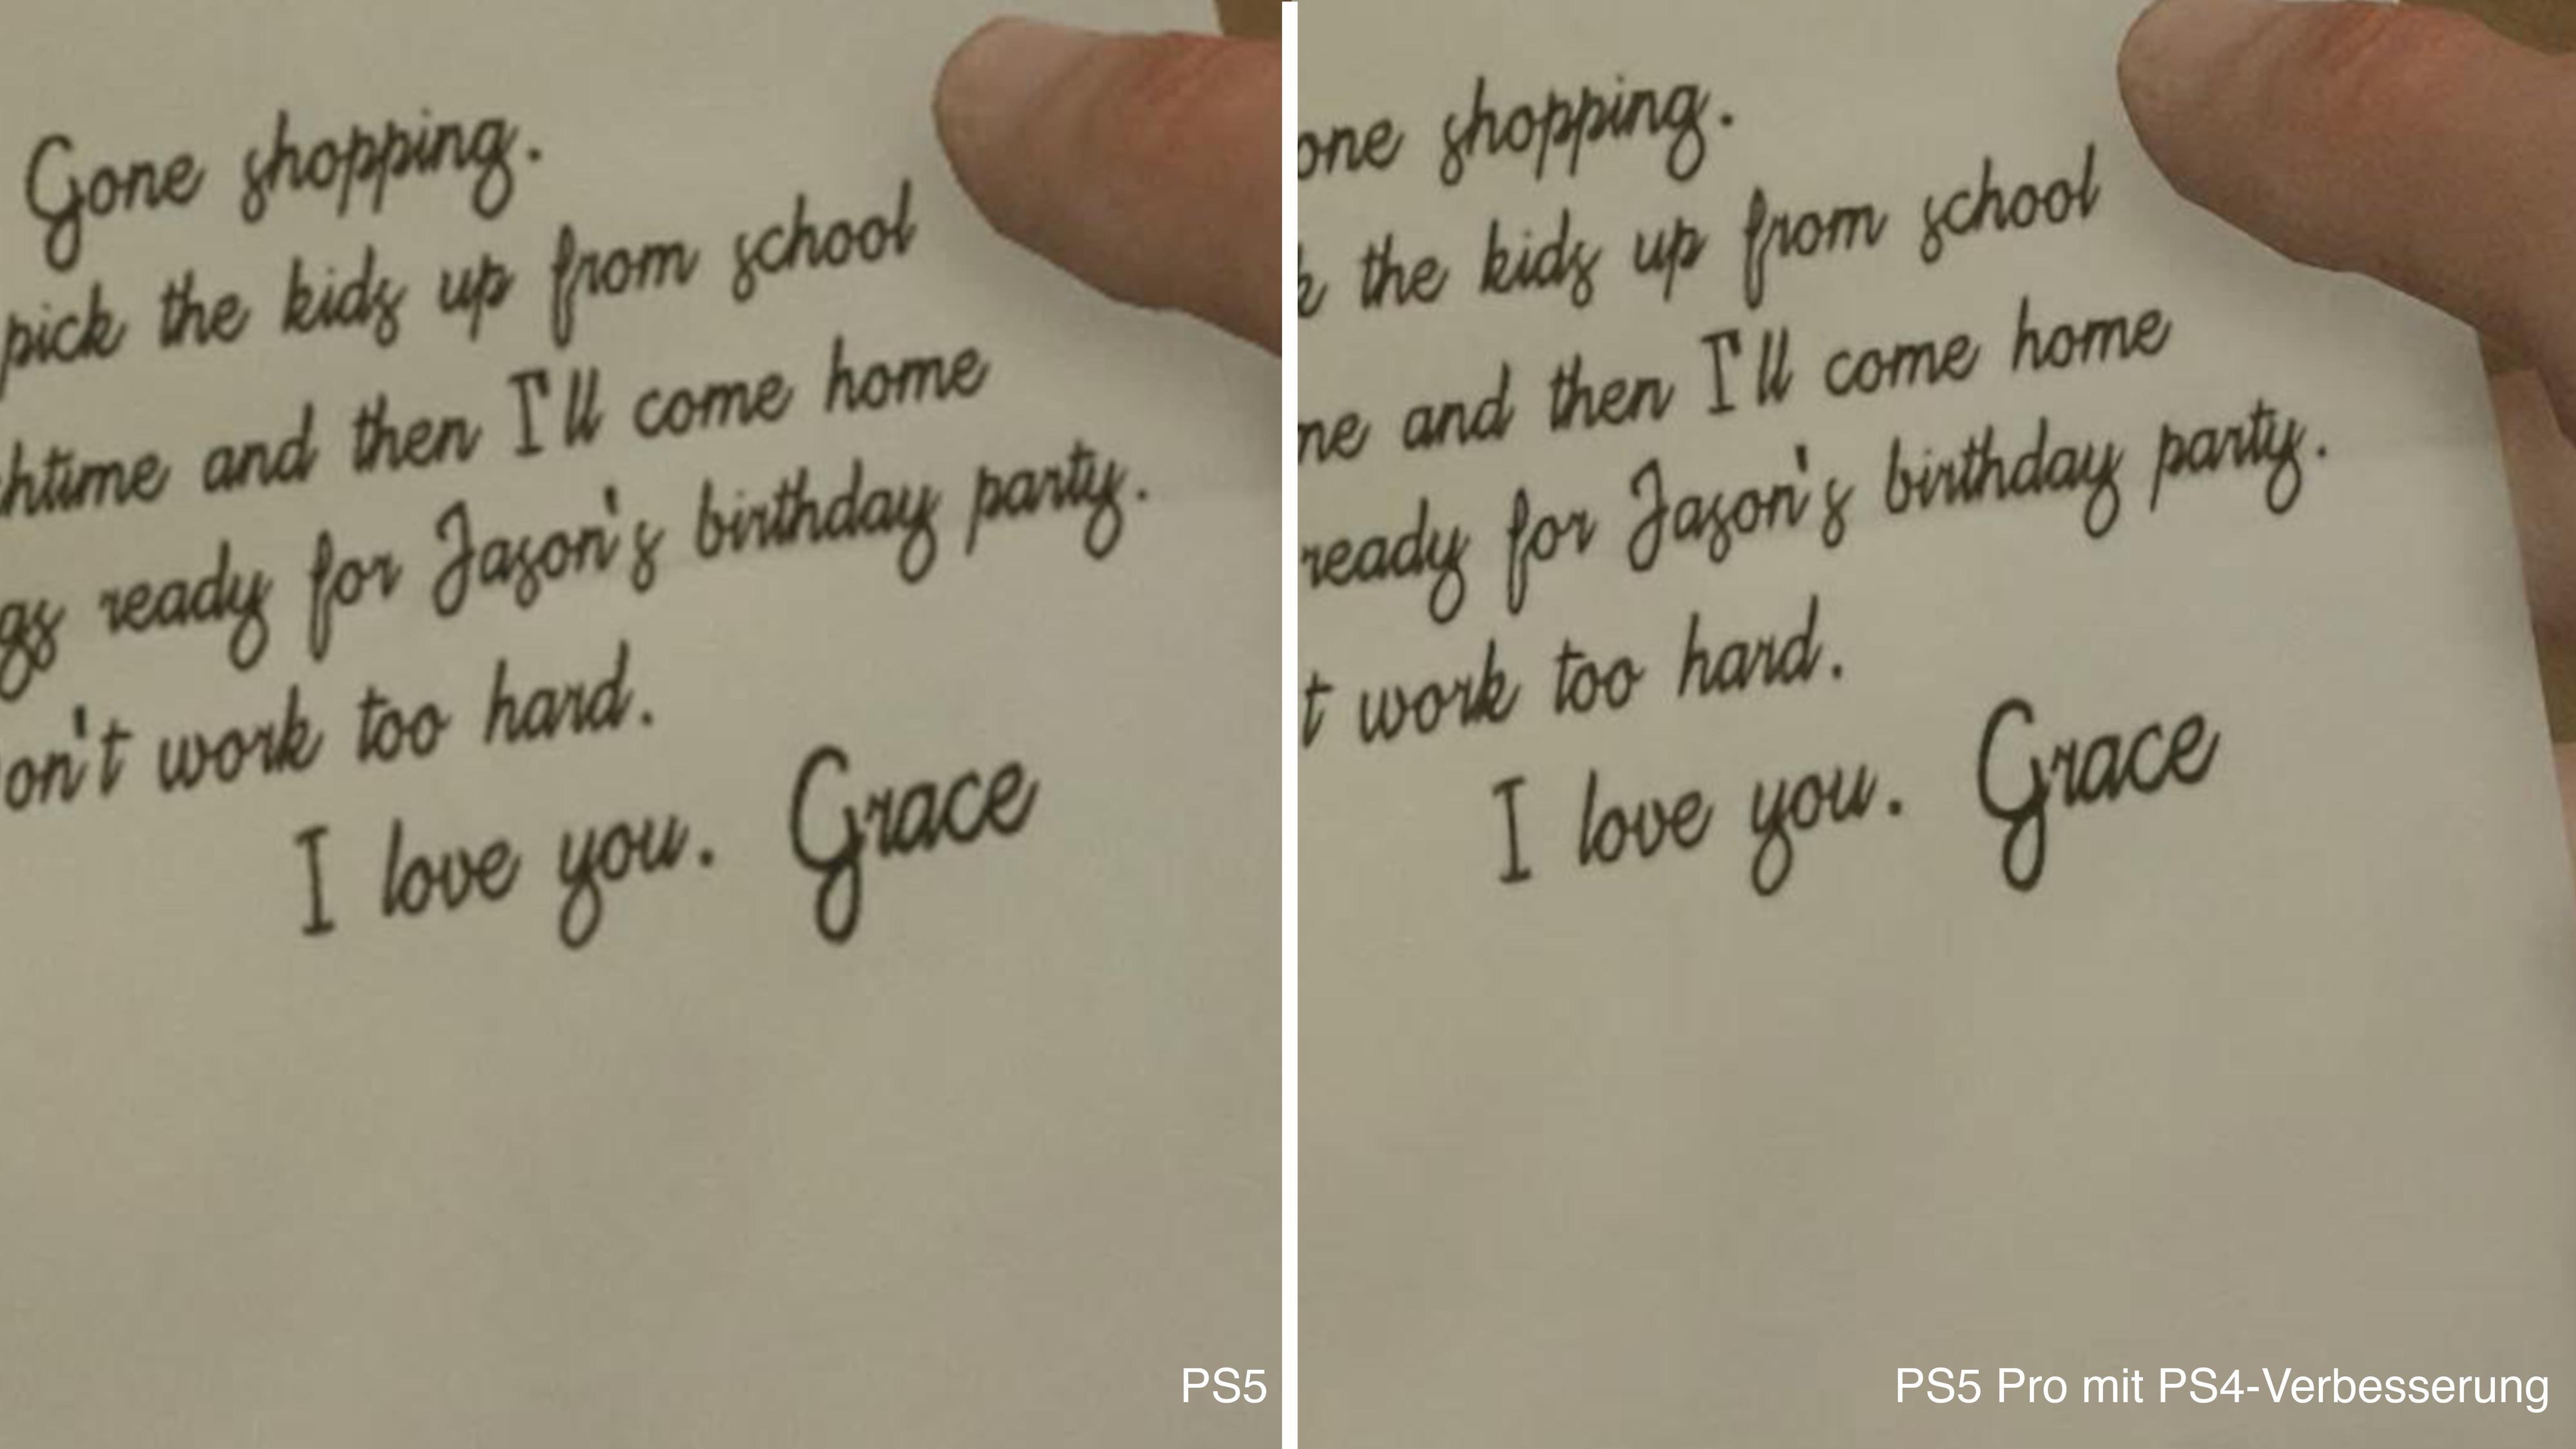 Gone shopping.
pick the kids up from school
htime and then I'll come home
gs ready for Jason's birthday party.
on't work too hard.
I love you. Grace
PS5
one shopping.
k the kids up from school
me and then I'll come home
ready for Jason's birthday party.
t work too hard.
I love you. Grace
PS5 Pro mit PS4-Verbesserung